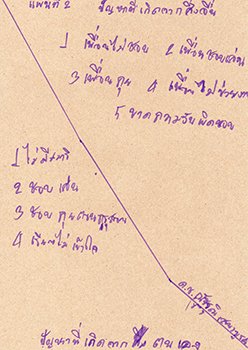 แผนที่ 2 ปัญหาที่เกิดจากสิ่งอื่น
1 เพื่อนไม่ชอบ 2 เพื่อนชอบเล่น
3 เพื่อนคุย 4 เพื่อนไม่ช่วยงาน
5 ขาดความรับผิดชอบ
1 ไม่มีสมาธิ
2 ชอบเล่น
3 ชอบคุยตอนครูสอน
4 เรียนไม่เข้าใจ
ปัญหาที่เกิดจาก ตนเอง